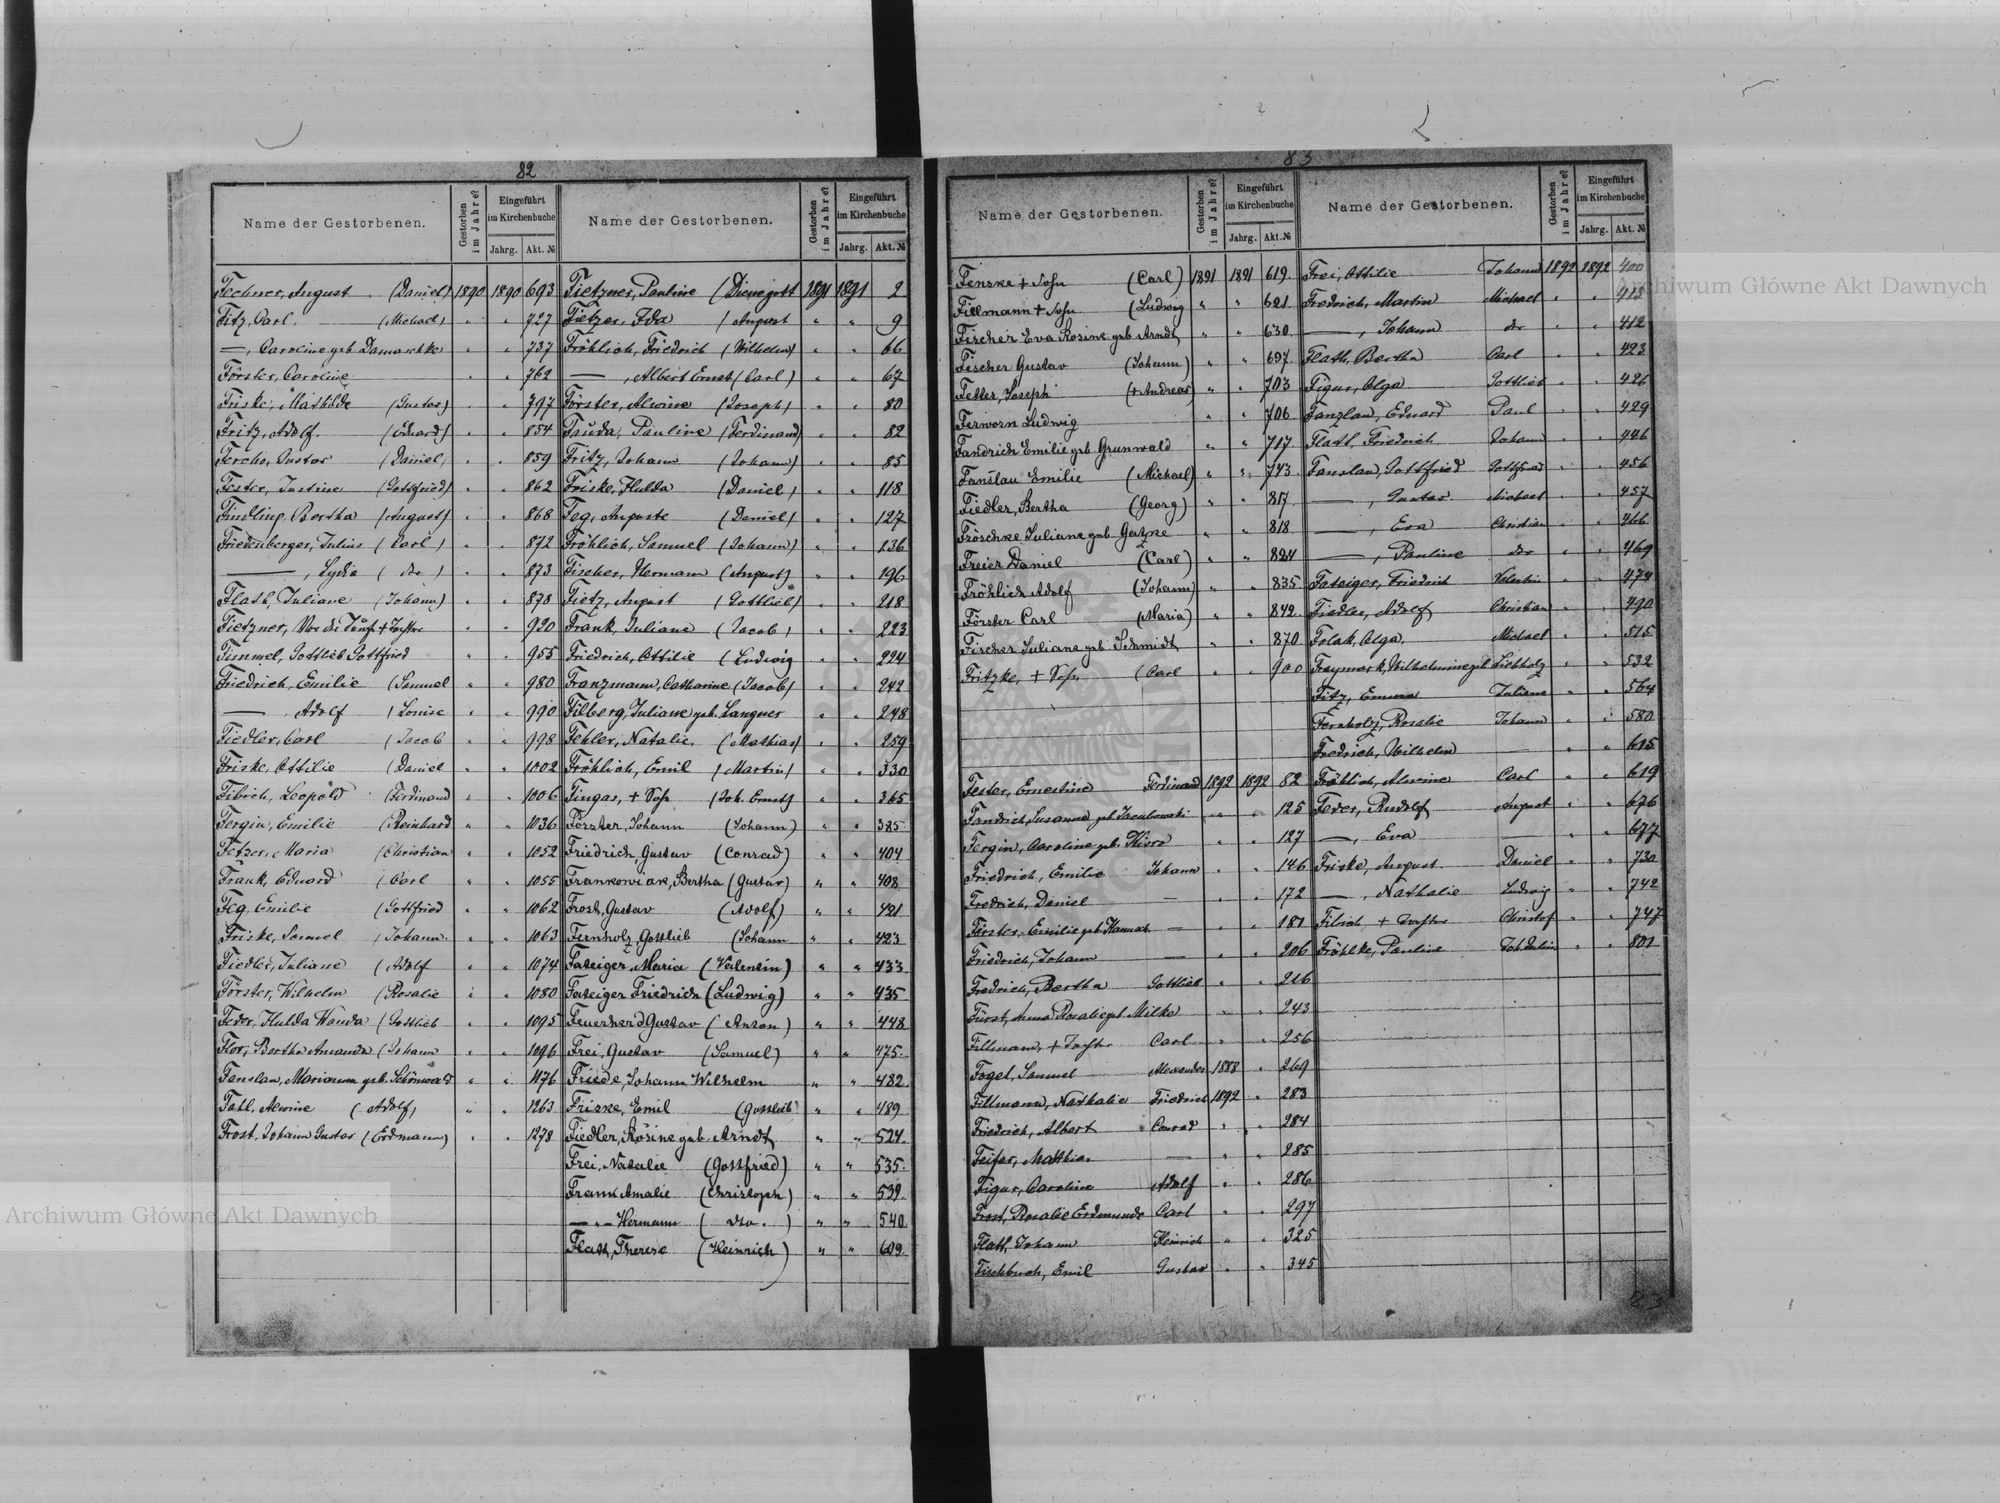 82
Name der Gestorbenen. Gestorben im Jahre? Eingeführt im Kirchenbuche Jahrg. Akt. №
Fechner, August (Daniel) 1890 1890 693
Fitz, Carl (Michael) " " 727
—, Caroline geb. Damaschke " " 737
Förster, Caroline " " 762
Friske, Mathilde (Gustav) " " 797
Fritz, Adolf (Eduard) " " 854
Fercho, Gustav (Daniel) " " 859
Fester, Justine (Gottfried) " " 862
Findling, Bertha (August) " " 868
Friedenberger, Julius (Carl) " " 872
—, Lydia (der) " " 873
Flath, Juliane (Johann) " " 878
Fietzner, Vor der Taufe + Tochter " " 920
Fimmel, Gottlieb Gottfried " " 955
Friedrich, Emilie (Samuel " " 980
— Adolf (Louise " " 990
Fiedler, Carl (Jacob " " 998
Friske, Ottilie (Daniel " " 1002
Fibich, Leopold (Ferdinand " " 1006
Fergin, Emilie (Reinhard " " 1036
Fetzer, Maria (Christian " " 1052
Frank, Eduard (Carl " " 1055
Feg, Emilie (Gottfried " " 1062
Friske, Samuel (Johann " " 1063
Fiedler, Juliane (Adolf " " 1074
Förster, Wilhelm (Rosalie " " 1080
Feder, Hulda Wanda (Gottlieb " " 1095
Flor, Bertha Amanda (Johann " " 1096
Fanslau, Marianna geb. Schönwald " " 1176
Fahl, Alwine (Adolf) " " 1263
Frost, Johann Gustav (Erdmann) " " 1278
Name der Gestorbenen. Gestorben im Jahre? Eingeführt im Kirchenbuche Jahrg. Akt. №
Fietzner, Pauline (Dienegott 1891 1891 2
Fietzer, Ida (August " " 9
Fröhlich, Friedrich (Wilhelm) " " 66
—, Albert Ernst (Carl) " " 67
Förster, Alwine (Joseph) " " 80
Fauda, Pauline (Ferdinand) " " 82
Fritz, Johann (Johann) " " 85
Friske, Hulda (Daniel) " " 118
Feg, Auguste (Daniel) " " 127
Fröhlich, Samuel (Johann) " " 136
Fischer, Hermann (August) " " 196
Fietz, August (Gottlieb) " " 218
Frank, Juliane (Jacob) " " 223
Friedrich, Ottilie (Ludwig " " 224
Franzmann, Catharine (Jacob) " " 242
Filberg, Juliane geb. Langner " " 248
Fehler, Natalie (Mathias) " " 259
Fröhlich, Emil (Martin) " " 330
Fingas, + Sohn (Joh. Ernst) " " 365
Förster, Johann (Johann) " " 385
Friedrich, Gustav (Conrad) " " 404
Frankowiak, Bertha (Gustav) " " 408
Frost, Gustav (Adolf) " " 421
Fernholz, Gottlieb (Johann " " 423
Fateiger, Maria (Valentin) " " 433
Fateiger Friedrich (Ludwig) " " 435
Feuerherd Gustav (Anton) " " 448
Frei, Gustav (Samuel) " " 475
Friede, Johann Wilhelm " " 482
Friske, Emil (Gottlieb) " " 489
Fiedler, Rosine geb. Arndt " " 524
Frei, Natalie (Gottfried) " " 535
Frank Amalie (Christoph) " " 539
—"— Hermann (dto.) " " 540
Flath, Therese (Heinrich) " " 609
83
Name der Gestorbenen. Gestorben im Jahre? Eingeführt im Kirchenbuche Jahrg. Akt. №
Fenske + Sohn (Carl) 1891 1891 619
Fillmann + Sohn (Ludwig " " 621
Fischer Eva Rosine geb. Arndt " " 630
Fischer Gustav (Johann) " " 697
Feller, Joseph (+ Andreas) " " 703
Ferworn Ludwig " " 706
Fandrich Emilie geb. Grunwald " " 717
Fanslau Emilie (Michael) " " 743
Fiedler, Bertha (Georg) " " 817
Fröschke Juliane geb. Gatzke " " 818
Freier Daniel (Carl) " " 824
Fröhlich Adolf (Johann) " " 835
Förster Carl (Maria) " " 842
Fischer Juliane geb. Schmidt " " 870
Fritzke, + Sohn (Carl " " 900
Fester, Ernestine Ferdinand 1892 1892 82
Fandrich, Susanna geb. Jacubowski " " 125
Fergin, Caroline geb. " " 127
Friedrich, Emilie Johann " " 146
Fredrich, Daniel — " " 172
Förster, Emilie geb. — " " 181
Friedrich, Johann — " " 206
Fredrich, Bertha Gottlieb " " 216
Fürst, Anna Rosalie geb. Milke " " 243
Fillmann, + Tochter Carl " " 256
Fogel, Samuel Alexander 1888 " 269
Fillmann, Nathalie Friedrich 1892 " 283
Friedrich, Albert Conrad " " 284
Feifer, Mathias — " " 285
Figur, Caroline Adolf " " 286
Frost, Rosalie Erdmunde Carl " " 297
Flath, Johann Heinrich " " 325
Fischbuch, Emil Gustav " " 345
Name der Gestorbenen. Gestorben im Jahre? Eingeführt im Kirchenbuche Jahrg. Akt. №
Frei, Ottilie Johann 1892 1892 400
Fredrich, Martin Michael " "
—, Johann der " " 412
Flath, Bertha Carl " " 423
Figur, Olga Gottlieb " " 426
Fanzlau, Eduard Paul " " 429
Flatt, Friedrich Johann " " 446
Fanslau, Gottfried Gottfried " " 456
—, Gustav Michael " " 457
—, Eva Christian " " 466
—, Pauline der " " 469
Fateiger, Friedrich Valentin " " 474
Fiedler, Adolf Christian " " 490
Folak, Olga Michael " " 515
Fraymark, Wilhelmine geb. Liebholz " " 532
Fitz, Emma Juliane " " 564
Fernholz, Rosalie Johann " " 580
Fredrich, Wilhelm — " " 615
Fröhlich, Alwine Carl " " 619
Feder, Rudolf August " " 676
—, Eva — " " 677
Friske, August Daniel " " 730
—, Nathalie Ludwig " " 742
Fibich, + Tochter Christof " " 747
Fröhlke, Pauline Joh. Julius " " 801
83
Archiwum Główne Akt Dawnych
Archiwum Główne Akt Dawnych